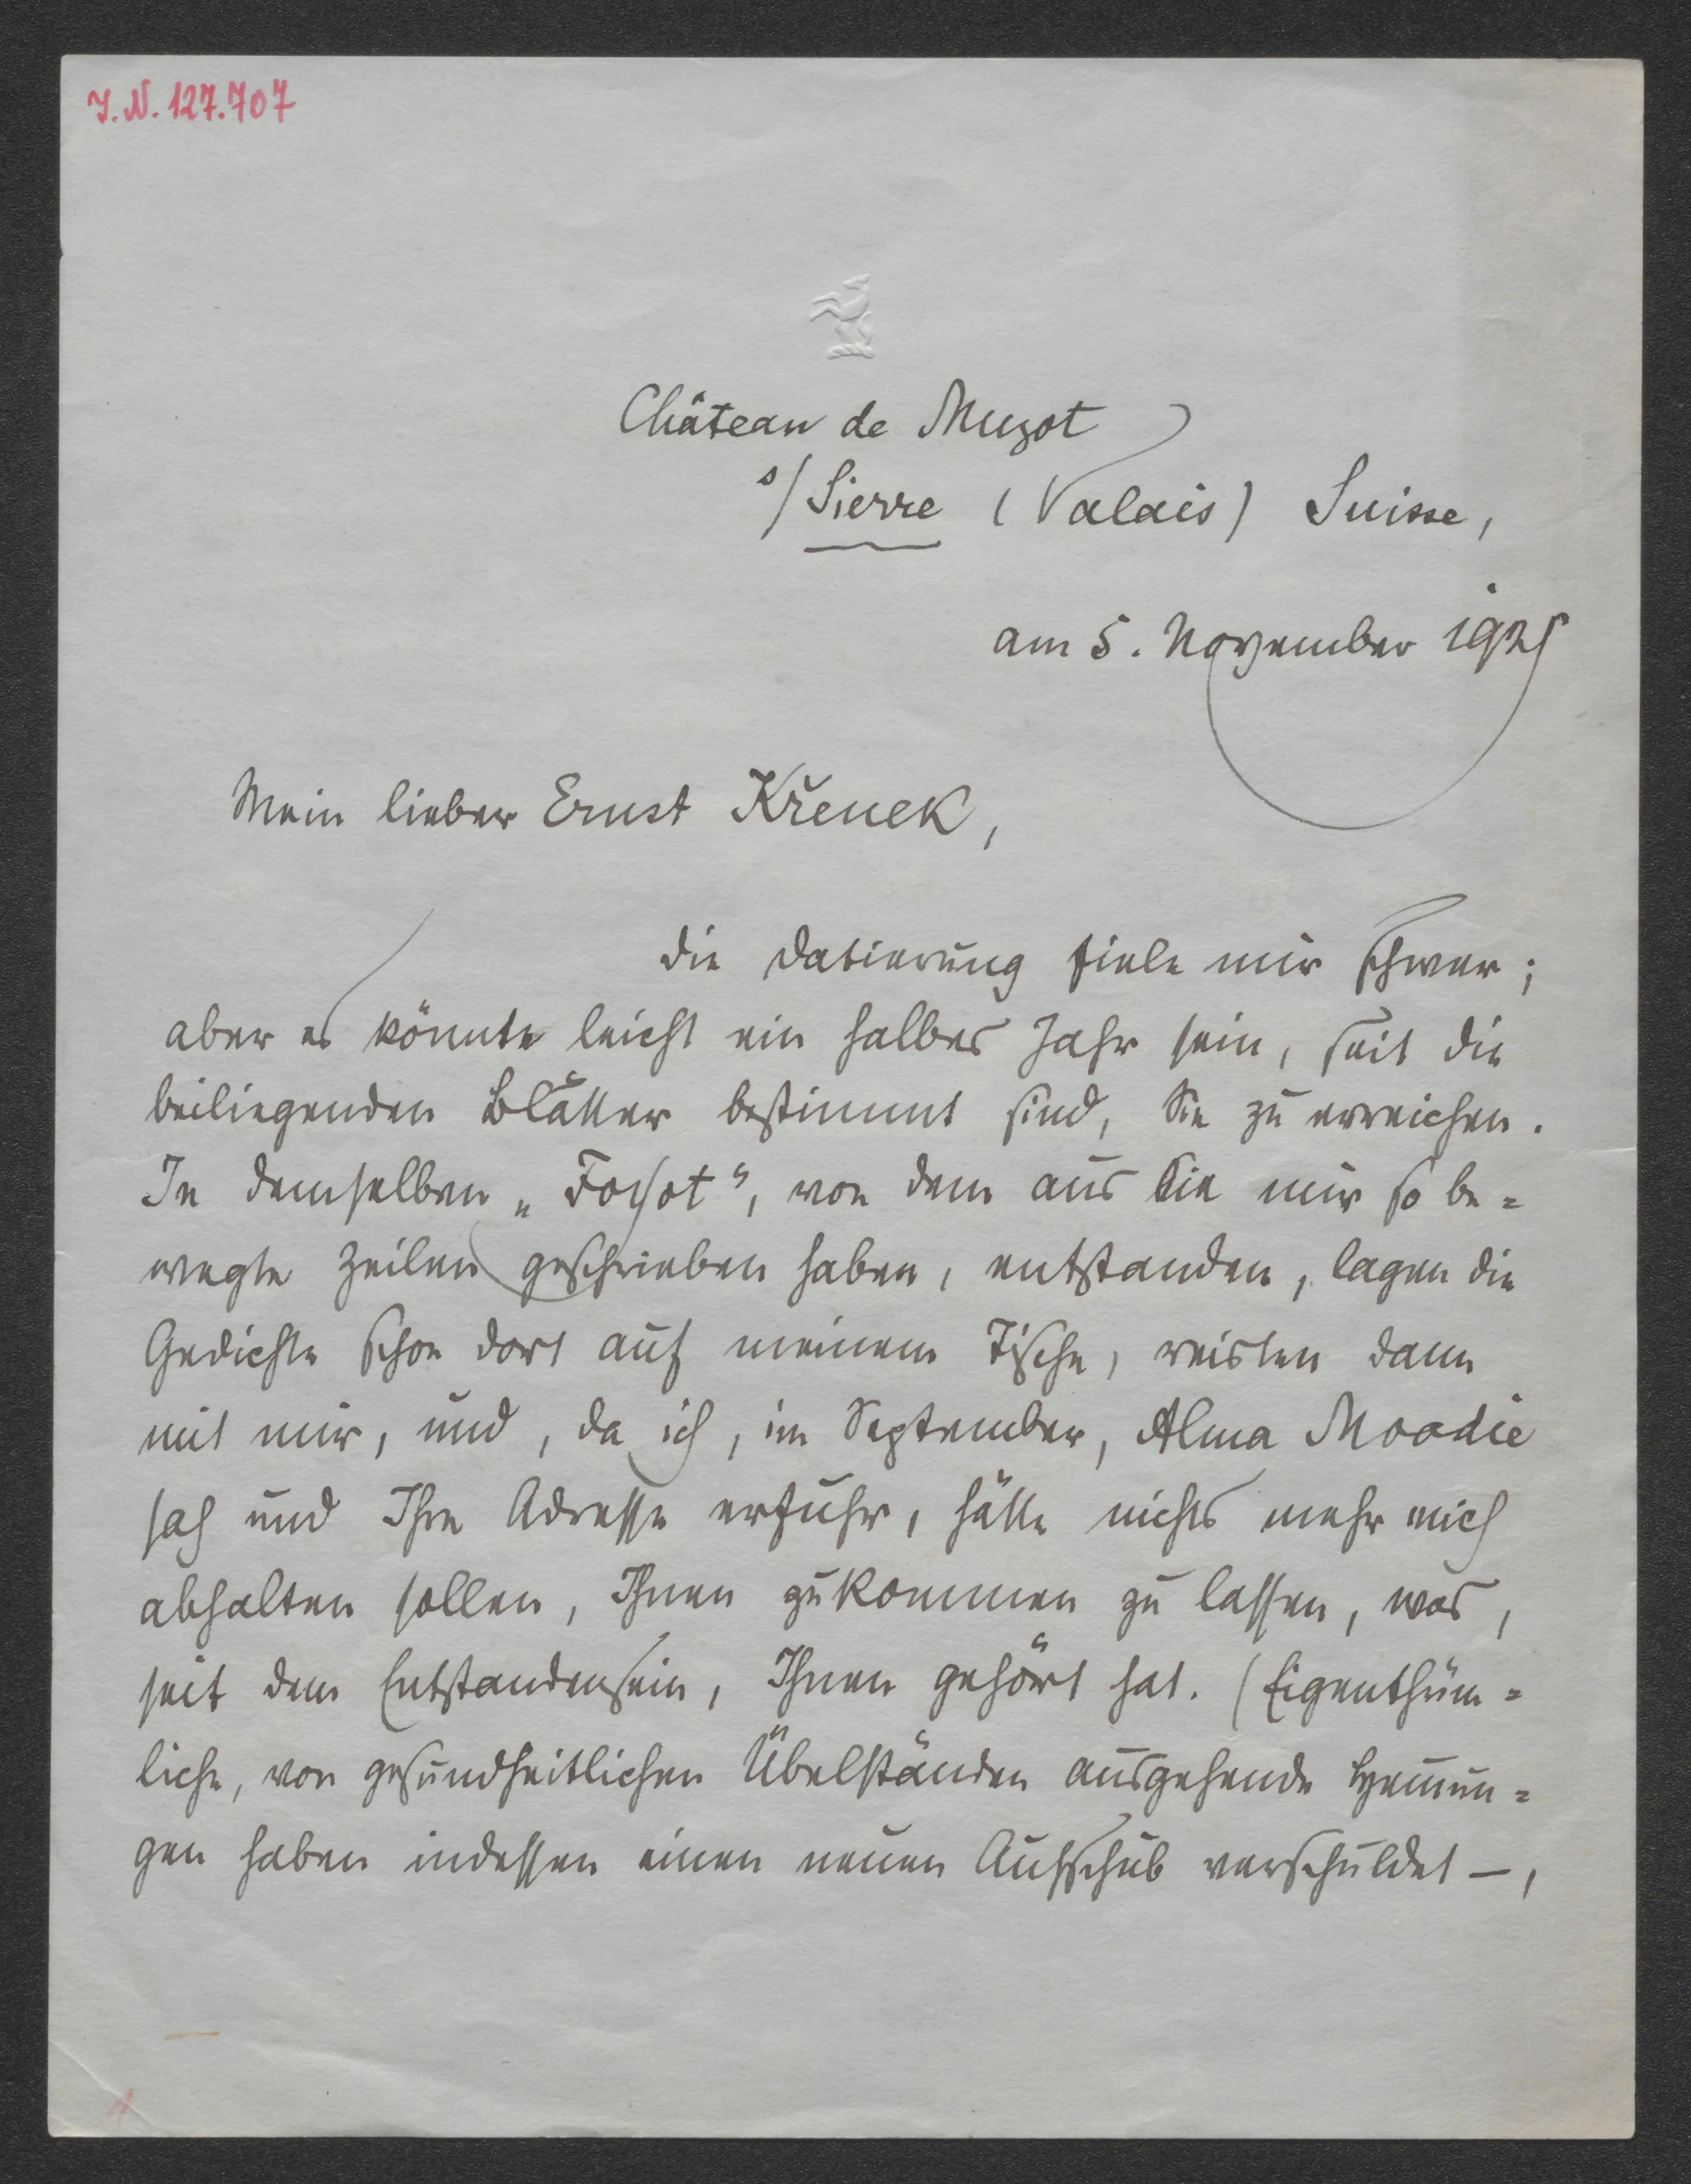 I.N. 127.707
Château de Muzot
s/ Sierre (Valais) Suisse,
am 5. November 1925
Mein lieber Ernst Křenek,
die Datierung fiele mir schwer;
aber es könnte leicht ein halbes Jahr sein, seit die
beiliegenden Blätter bestimmt sind, Sie zu erreichen.
In demselben „Foyot“, von dem aus Sie mir so be=
wegte Zeilen geschrieben haben, entstanden, lagen die
Gedichte schon dort auf meinem Tische, reisten dann
mit mir, und, da ich, im September, Alma Moodie
sah und Ihre Adresse erfuhr, hätte nichts mehr mich
abhalten sollen, Ihnen zukommen zu lassen, was,
seit dem Entstandensein, Ihnen gehört hat. (Eigenthüm=
liche, von gesundheitlichen Übelständen ausgehende Hemun=
gen haben indessen einen neuen Aufschub verschuldet –,
1